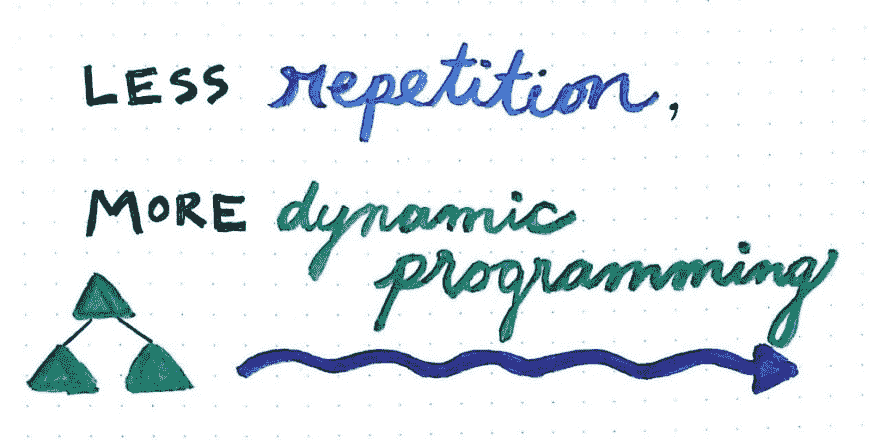 LESS repetition,
MORE dynamic
programming